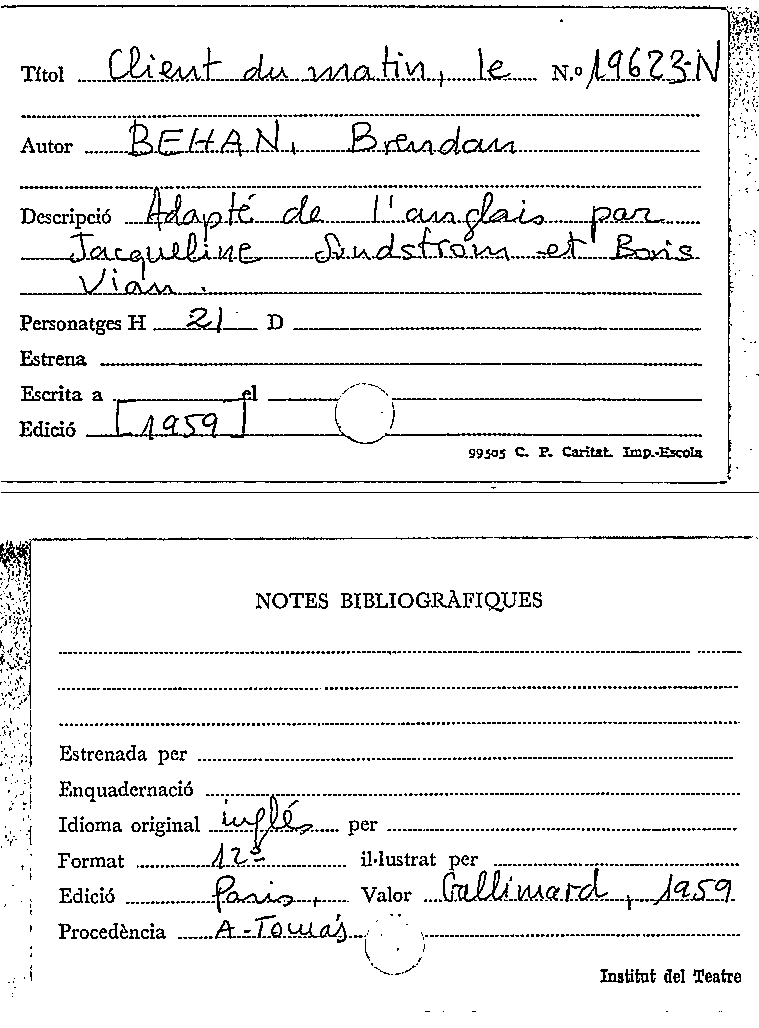 Títol Client du matin, le N.º 19623-N
Autor BEHAN, Brendan
Descripció Adapté de l'anglais par
Jacqueline Sundstrom et Boris
Vian.
Personatges H 21 D
Estrena
Escrita a el
Edició [1959]
99505 C. P. Caritat. Imp.-Escola
NOTES BIBLIOGRÀFIQUES
Estrenada per
Enquadernació
Idioma original inglés per
Format 12º il·lustrat per
Edició Paris, Valor Gallimard, 1959
Procedència A-Tomás
Institut del Teatre